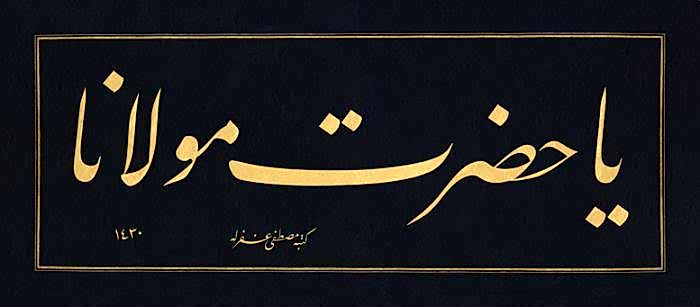 يا حضرت مولانا
كتبه مصطفى غفر له
١٤٣٠